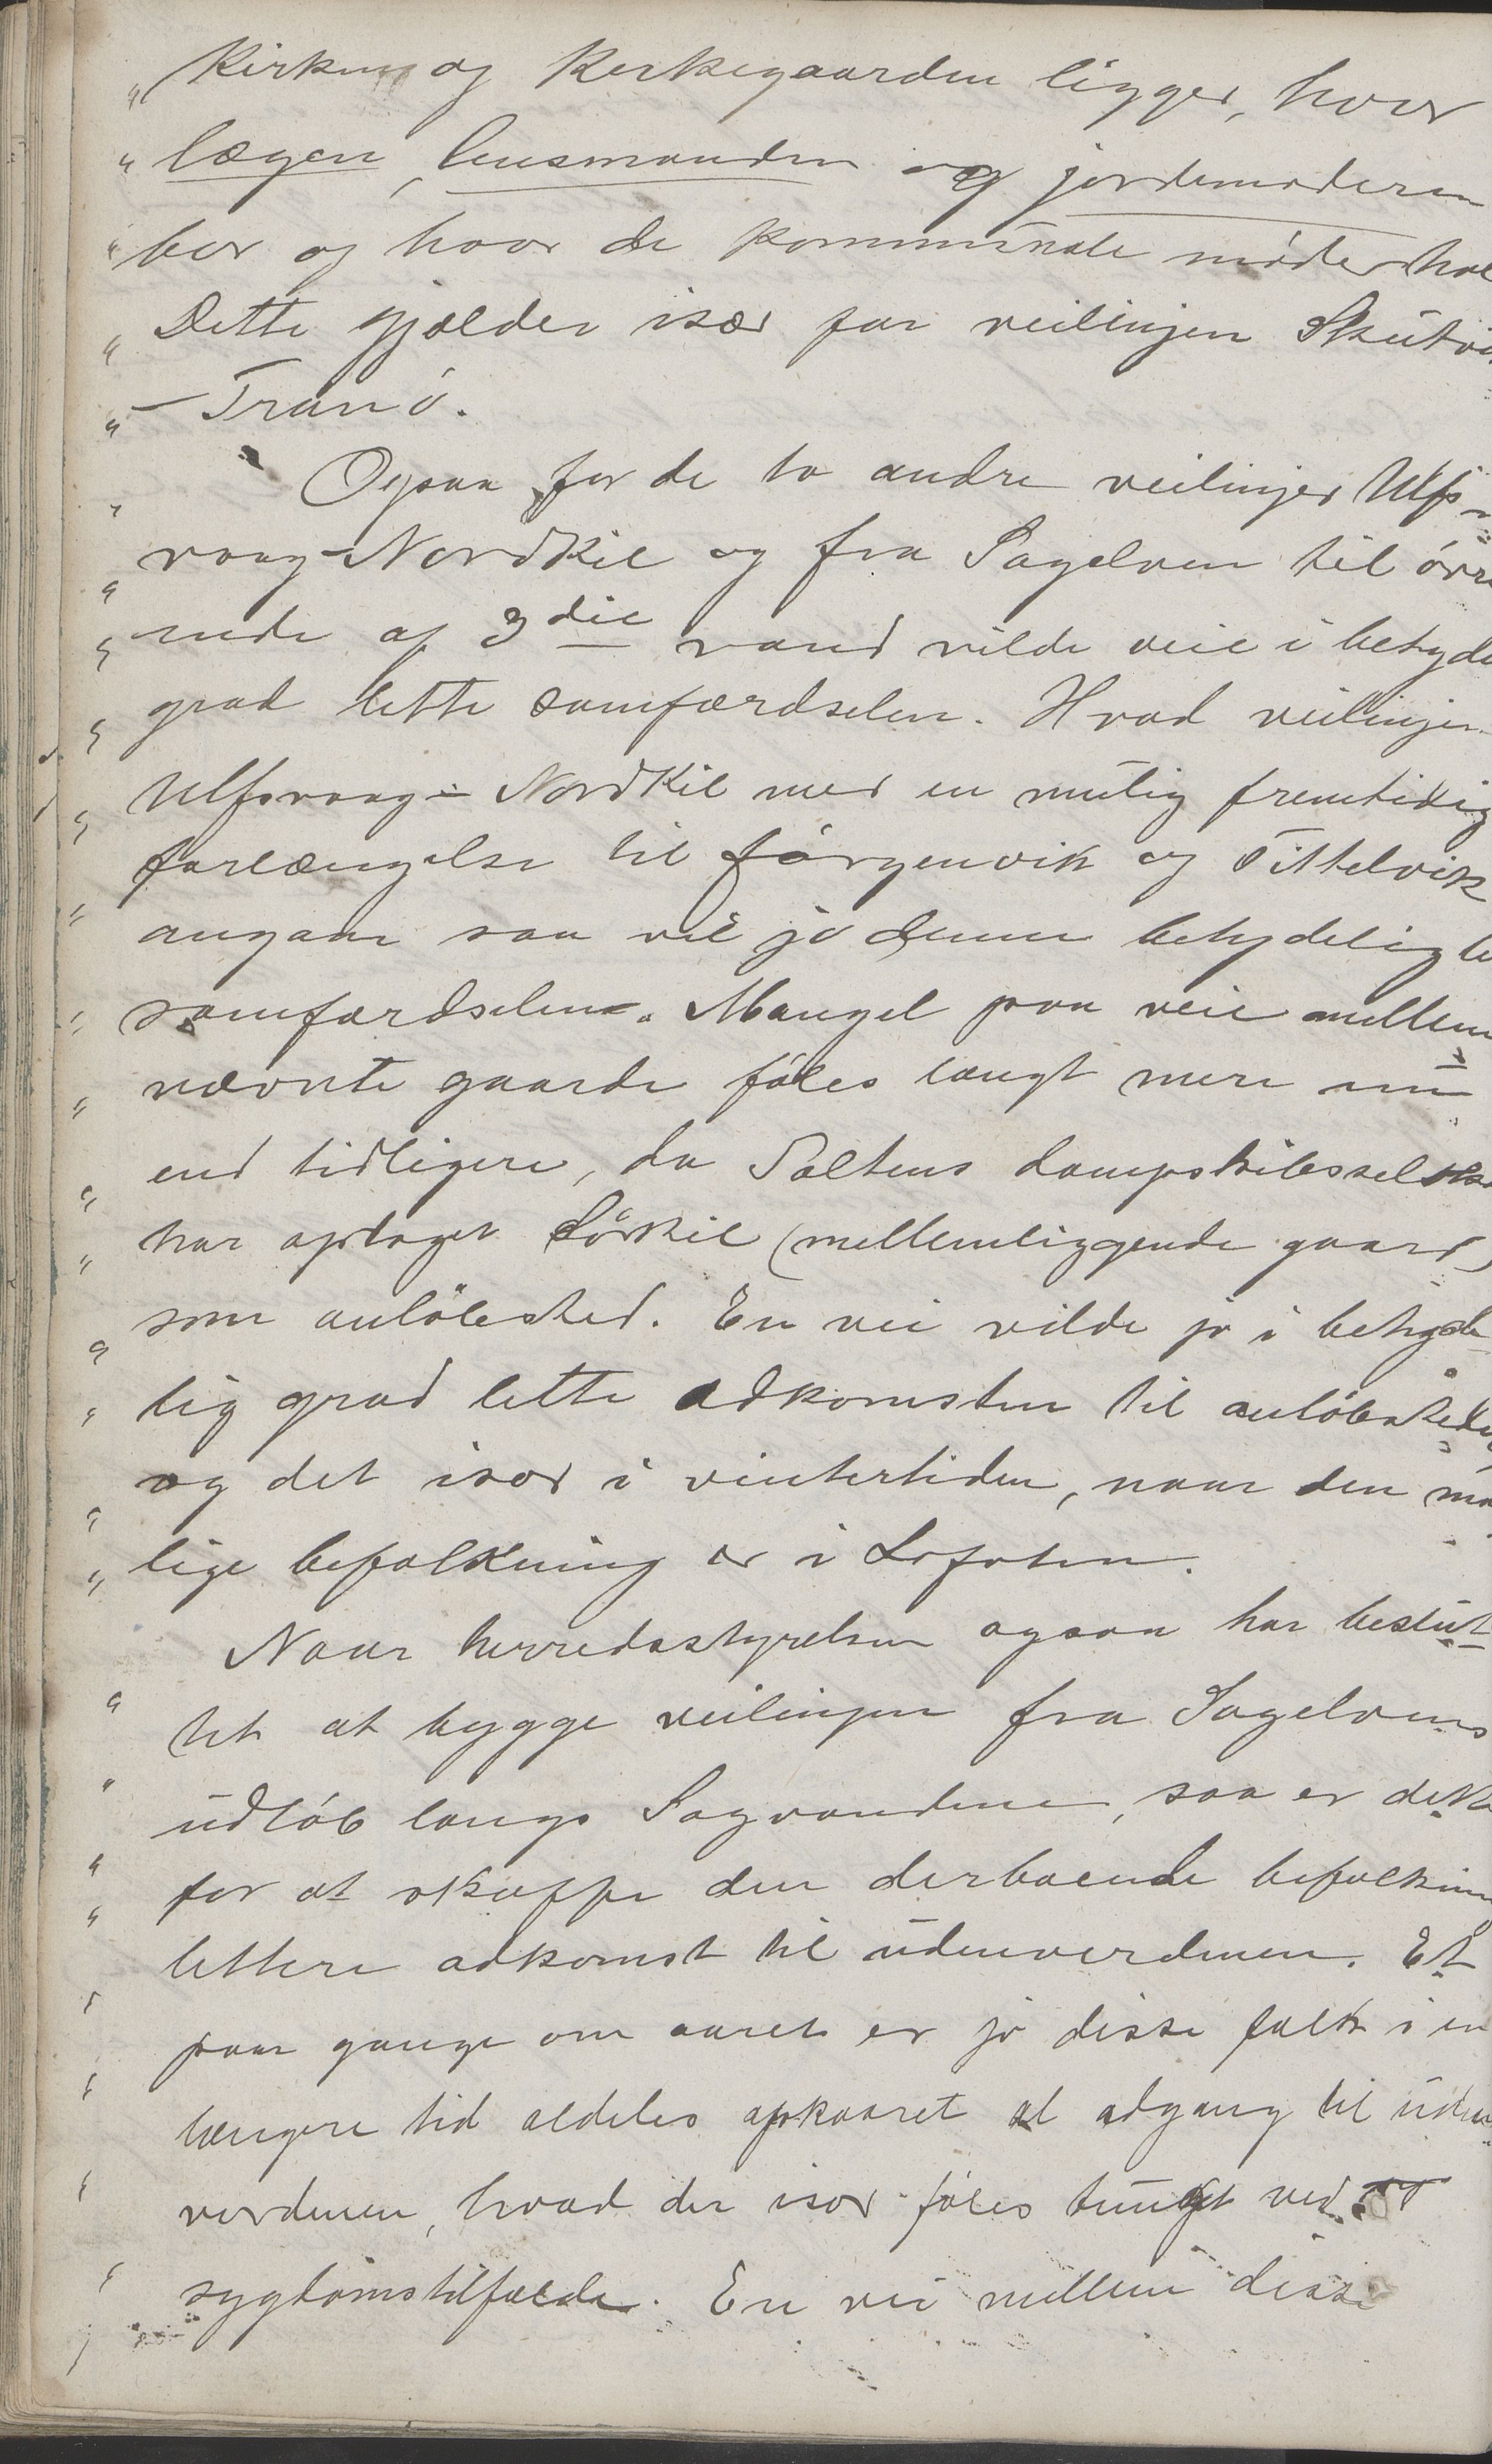 „ Kirken og Kirkegaarden ligger, hvor
„ lægen, lensmanden og jordemoderen
„ bor og hvor de kommunale møder hol
„ Dette gjælder især for veilinjen Skutvi
„ – Tranö.
„ Ogsaa for de to andre veilinjer Ulfs-
„ vaag–Nordkil og fra Sagelven til övre
„ ende af 3die vand vilde veie i betyde
„ grad lette samfærdselen. Hvad veilinjen
„ Ulfsvaag – Nordkil med en mulig fremtidig
„ forlængelse til Jörgenvik og Tittelvik
„ angaar saa vil jo denne betydelig le
„ samfærdselen. Mangel paa veie mellem
„ nævnte gaarde föles langt mere nu
„ end tidligere, da Saltens dampskibsselsk
„ har optaget Sörkil (mellemliggende gaard)
„ som anlöbssted. En vei vilde jo i betyde
„ lig grad lette adkomsten til anlöbsstedet
„ og det især i vintertiden, naar den ma
„ lige befolkning er i Lofoten.
Naar herredsstyrelsen ogsaa har beslut-
„ tet at bygge veilinjen fra Sagelvens
„ udlöb langs Sagvandene, saa er dette
„ for at skaffe den derboende befolkning
„ lettere adkomst til udenverdenen. Et
„ paar gange om aaret er jo disse folk i en
„ længere tid aldeles afskaaret al adgang til uden
„ verdenen, hvad der især föles tungt ved
„ sygdomstilfælde. En vei mellem disse